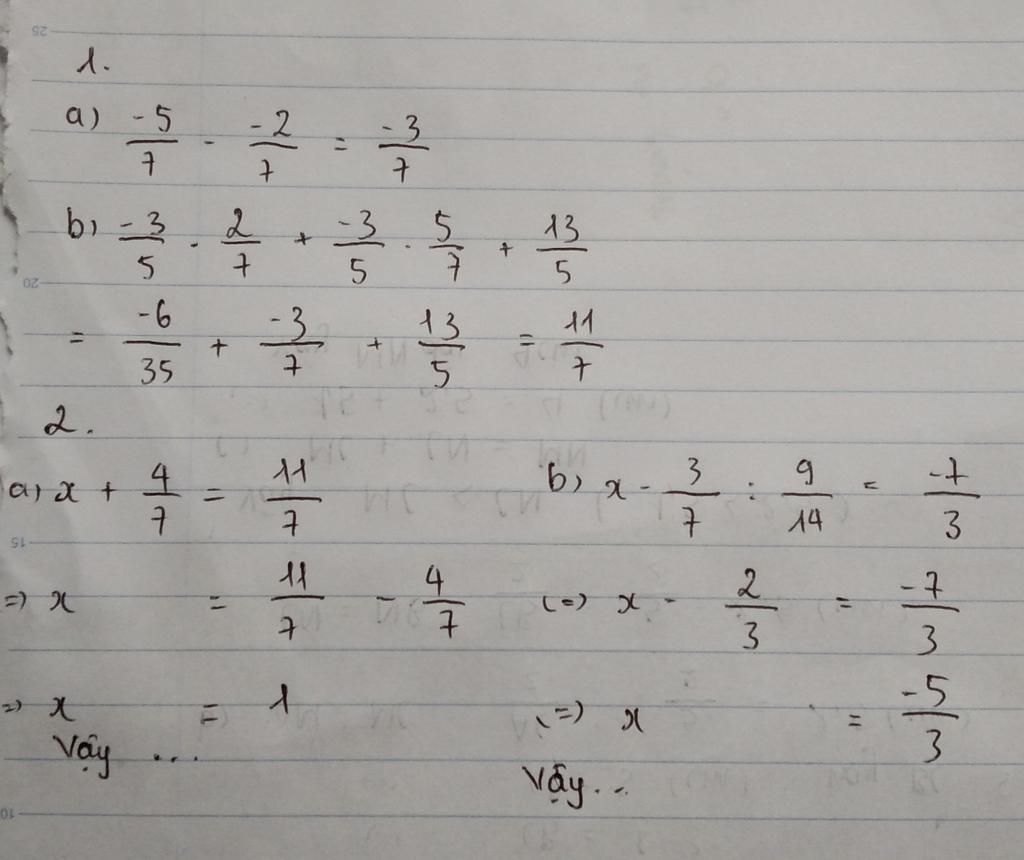 1.
a) -5/7 - -2/7 = -3/7
b) -3/5 . 2/7 + -3/5 . 5/7 + 13/5
= -6/35 + -3/7 + 13/5 = 11/7
2.
a) x + 4/7 = 11/7
=> x = 11/7 - 4/7
=> x = 1
Vậy ...
b) x - 3/7 : 9/14 = -7/3
(=) x - 2/3 = -7/3
(=) x = -5/3
Vậy...
25
20
15
10